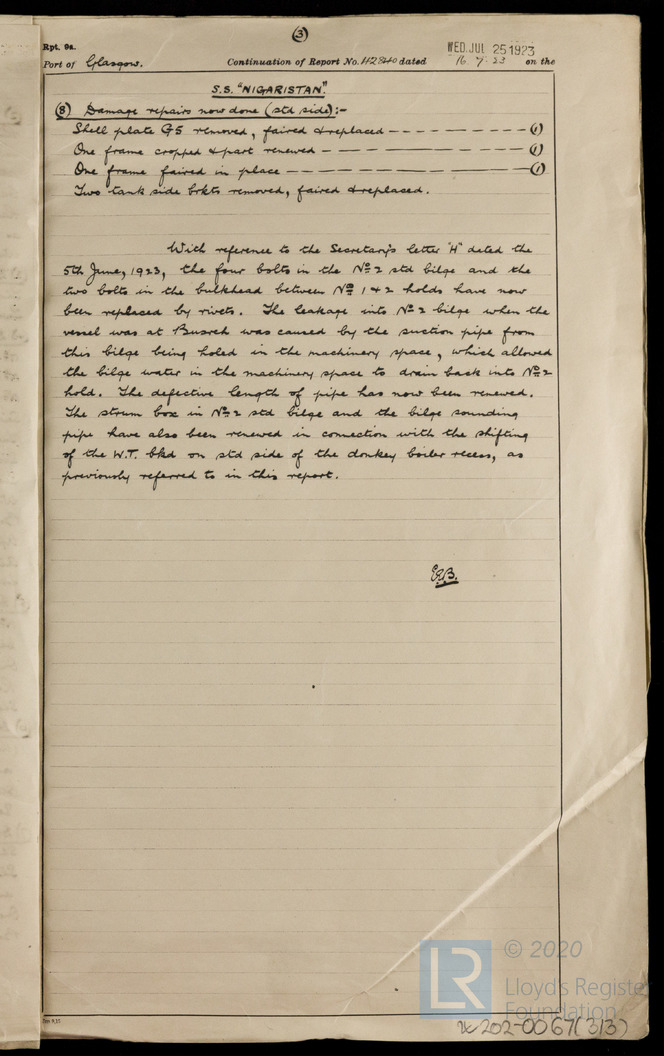 (3)
Rpt. 9a.
WED. JUL 25 1923
Port of Glasgow. Continuation of Report No. 42840 dated 16.7.23 on the
S.S. "NIGARISTAN".
(8) Damage repairs now done (stbd side):-
Shell plate G5 removed, faired & replaced - - - - - - - - (1)
One frame cropped & part renewed - - - - - - - - (1)
One frame faired in place - - - - - - - - (1)
Two tank side bkts removed, faired & replaced.
With reference to the Secretary's letter "H" dated the
5th June, 1923, the four bolts in the No 2 stbd bilge and the
two bolts in the bulkhead between Nos 1 & 2 holds have now
been replaced by rivets. The leakage into No 2 bilge when the
vessel was at Busreh was caused by the suction pipe from
this bilge being holed in the machinery space, which allowed
the bilge water in the machinery space to drain back into No 2
hold. The defective length of pipe has now been renewed.
The strum box in No 2 stbd bilge and the bilge sounding
pipe have also been renewed in connection with the shifting
of the W.T. bkd on stbd side of the donkey boiler recess, as
previously referred to in this report.
LR
© 2020
Lloyd's Register
Foundation
202-0067(3/3)